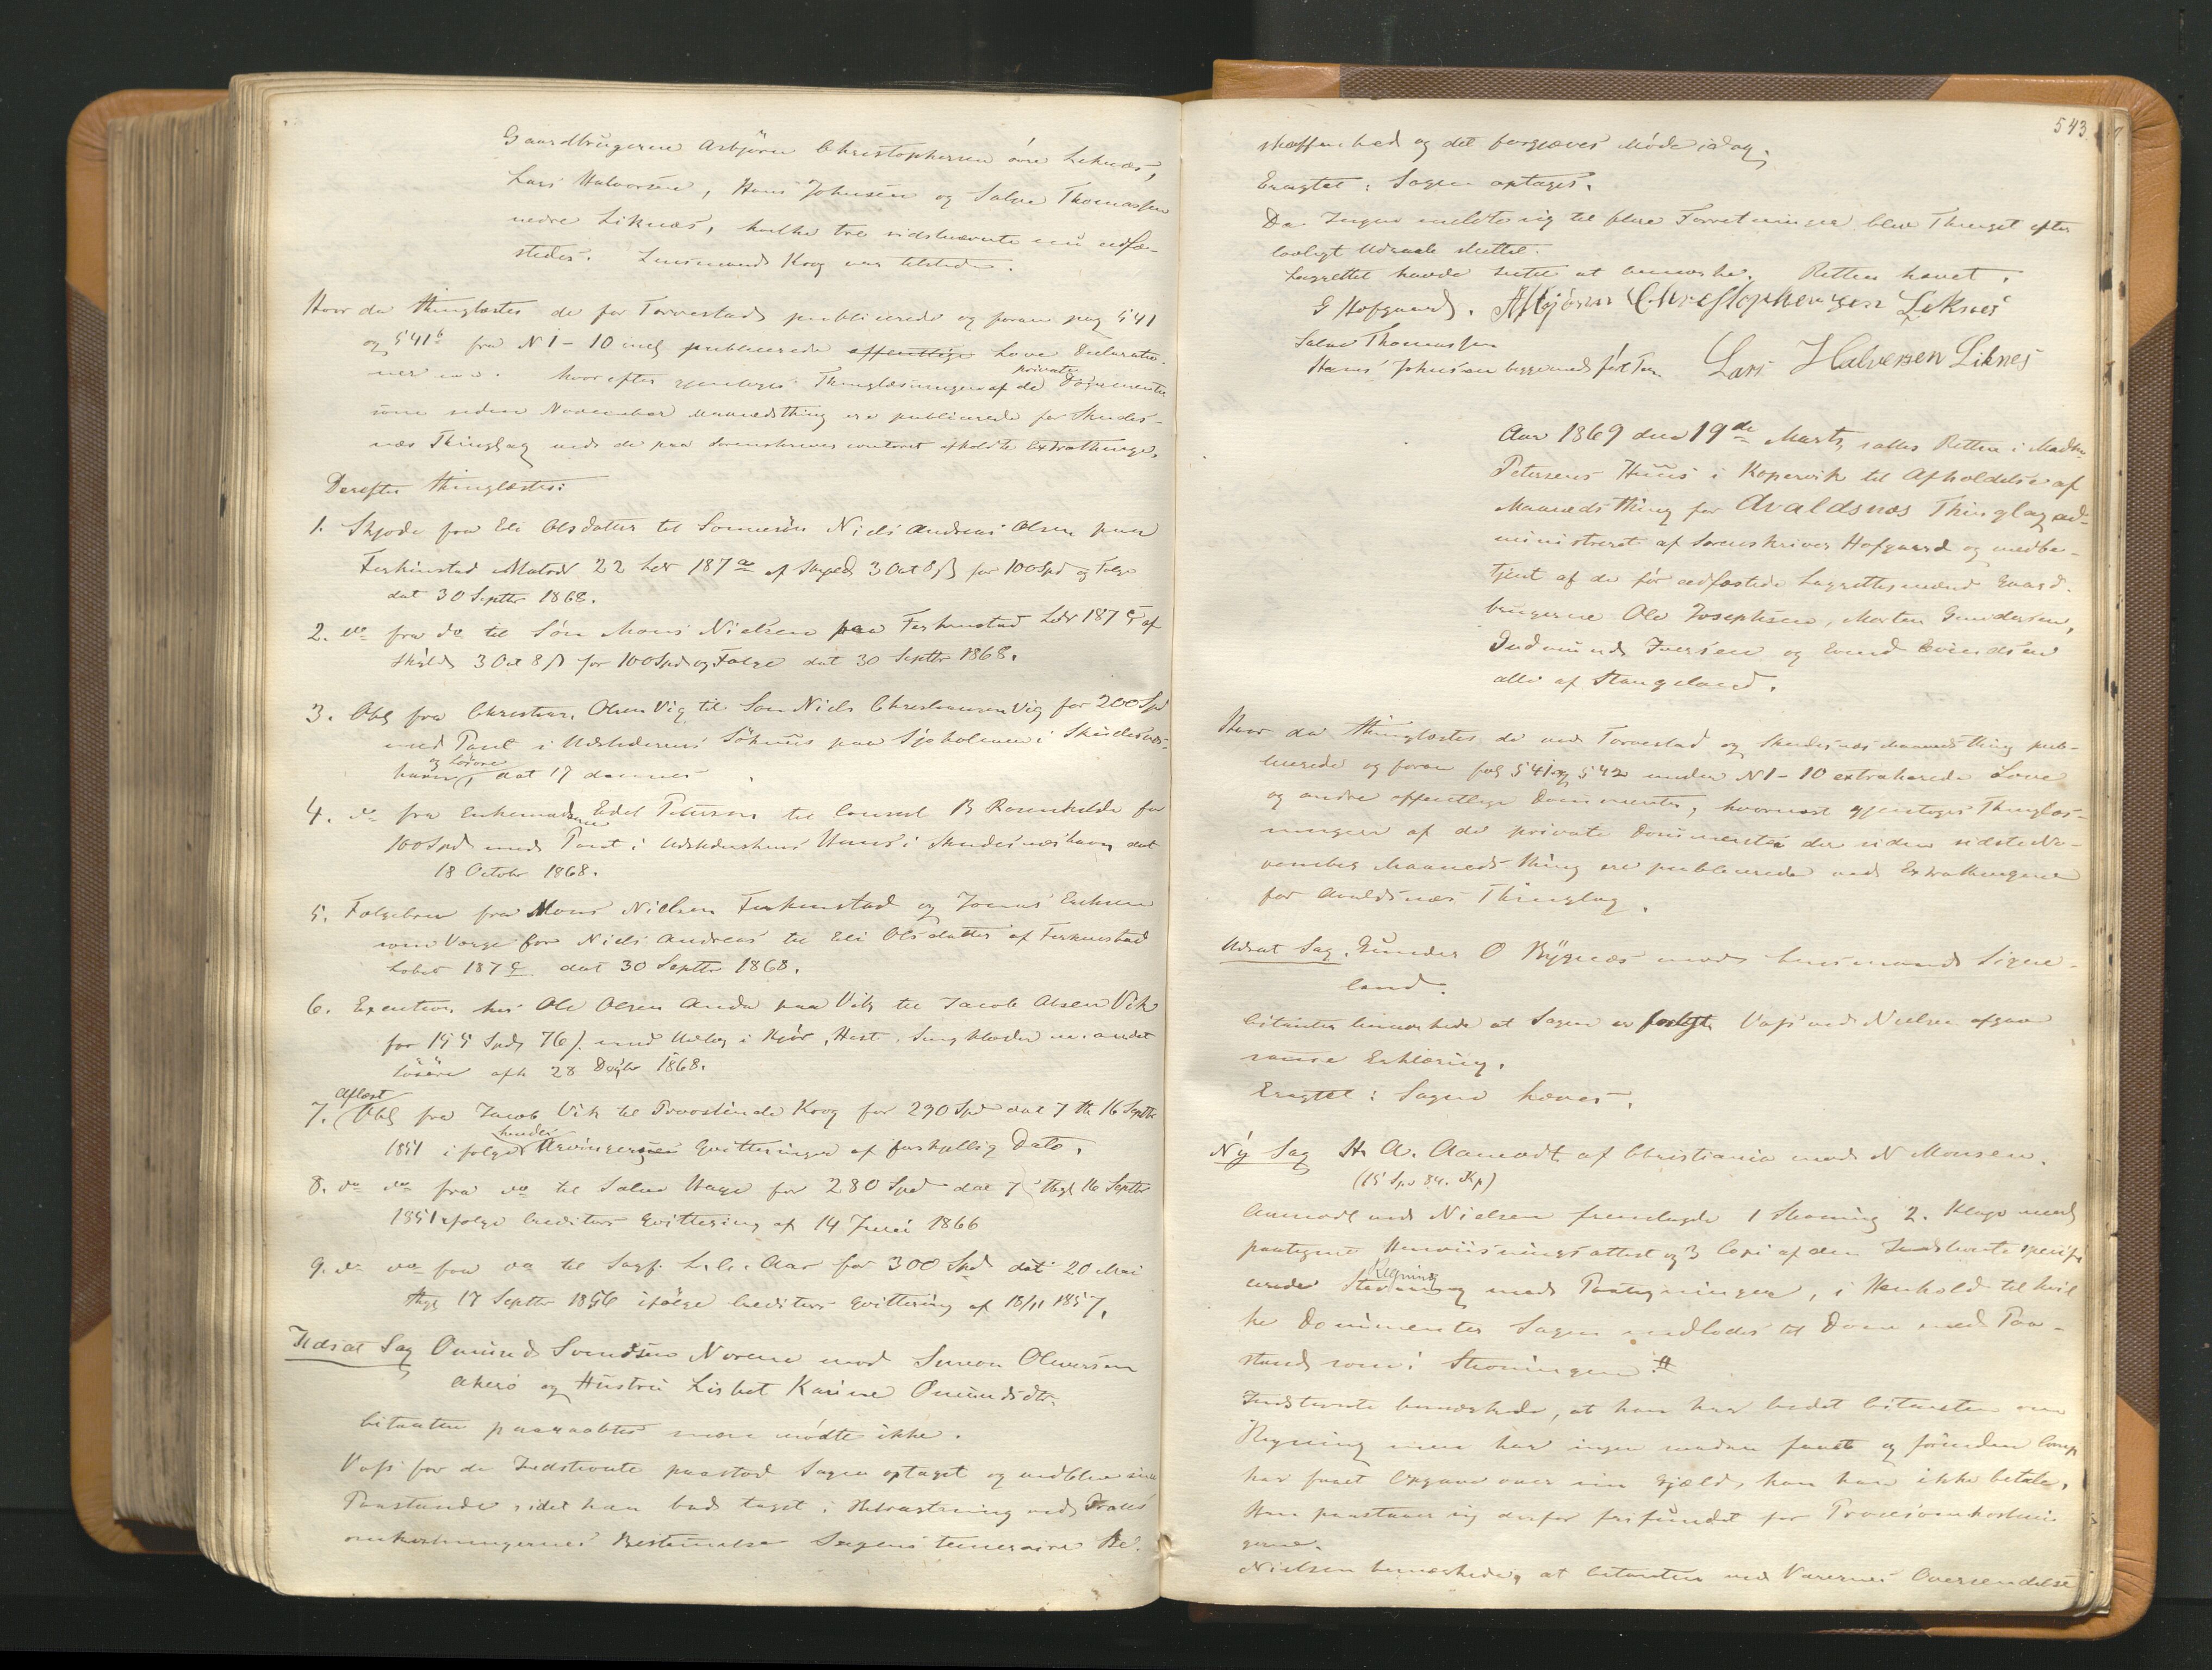 Gaardbrugerne Asbjörn Christophersen övre Liknæs,
Lars Halvorsen, Hans Johnsen og Salve Thomassen
nedre Liknæs, hvilke tre sidstnævnte nu edfæ-
stedes. Lensmand Krog var tilstede.
Hvor da thinglæstes de for Torvestad publicerede og foran pag 541
og 541b fra N 1 - 10 incl publicerede offentlige Love Declaratio-
ner m.v. hvorefter gjentoges Thinglæsningen af de private Documenter
som siden November Maanedsthing ere publicerede for Skudes-
næs Thinglag ved de paa Sorenskriver contoret afholdte Extrathinge.
Derefter thinglæstes:
1. Skjøde fra Eli Olsdatter til Sønnesön Niels Andreas Olsen paa
Ferkinstad Matr 22 Lbr 187a af Skyld 3 Ort 8 ß for 100 Spd og Følge
dat 30 Septbr 1868.
2. do fra do til Sön Mons Nielsen paa Ferkinstad Lbr 187c af
Skyld 3 Ort 8 ß for 100 Spd og Følge dat 30 Septbr 1868.
3. Obl fra Christian Olsen Vig til Søn Niels Christiansen Vig for 200 Spd
med Pant i Udstederens Söhuus paa Sjøholmen i Skudesnæs-
havn og Løsøre, dat 17 dennes
4. do fra Enkemadame Edel Petersen til Consul B Rosenkilde for
100 Spd med Pant i Udstederskens Huus i Skudesnæshavn dat
18 Octobr 1868.
5. Følgebrev fra Mons Nielsen Ferkinstad og Jonas Eriksen
som Værge for Niels Andreas til Eli Olsdatter af Ferkinstad
Løbnr 187c dat 30 Septbr 1868.
6. Execution hos Ole Olsen Anda paa Vik til Jacob Olsen Vik
for 195 Spd 76 ß med Udlæg i Kjør, Hest, Sengklæder m. andet
Løsöre afh 28 Decbr 1868.
Aflæst
7. Obl fra Jacob Vik til Provstinde Krog for 290 Spd dat 7 th 16 Septbr
1851 ifølge hendes Arvingers Qvitteringer af forskjellig Dato.
8. do do fra do til Salve Hage for 280 Spd dat 7 thgl 16 Septbr
1851 ifølge Creditors Qvittering af 14 Juni 1866
9. do do fra do til Sagf. L. C. Aar for 300 Spd dat 20 Mai
thgl 17 Septbr 1856 ifølge Creditors Qvittering af 18/11 1857.
Udsat Sag Omund Svendsen Norene mod Simon Oliversen
Akerø og Hustru Lisbet Karine Omundsdtr.
Citanten paaraabtes men mødte ikke.
Vass for de Indstevnte paastod Sagen optaget og nedlagde sin
Paastand, idet han bad taget i Betragtning ved Proces
omkostningernes Bestemmelse Sagens temeraire Be-
543
skaffenhed og det forgjæves Møde idag.
Eragtet: Sagen optages.
Da Ingen meldte sig til flere Forretninger blev Thinget efter
lovligt Udraab sluttet.
Lagrettet havde Intet at bemærke. Retten hævet.
G Hofgaard. Asbjörn Christophersen Leknes
Salve Thomassen
Hans Johnsen begge med ført Pen. Lars Halversen Liknes
Aar 1869 den 19de Marts sattes Retten i Madm
Petersens Huus i Kopervik til Afholdelse af
Maanedsthing for Avaldsnæs Thinglag ad-
ministreret af Sorenskriver Hofgaard og medbe-
tjent af de før edfæstede Lagrettesmænd Gaard-
brugerne Ole Josephsen, Morten Gundersen,
Gudmund Iversen og Eivind Eivindsen
alle af Stangeland.
Hvor da thinglæstes de ved Torvestad og Skudesnæs Maanedsthing pub-
licerede og foran fol 541 og 542 under N 1 - 10 extraherede Love
og andre offentlige Documenter, hvornæst gjentoges Thinglæs-
ningen af de private Documenter der siden sidste No-
vember Maaneds thing ere publicerede ved Extrathingene
for Avaldsnæs Thinglag.
Udsat Sag. Gunder O Bygnæs mod Lensmand Signe-
land.
Citanten bemærkede at Sagen er forligt. Vass ved Nielsen afgav
samme Erklæring.
Eragtet: Sagen hæves.
Ny Sag H. A. Aamodt af Christiania mod N Monsen.
(15 Spd 84. Sk)
Aamodt ved Nielsen fremlagde 1 Stevning 2. Klage med
paategnet Henviisningsattest og 3 Copi af den Indstevnte specifi-
cerede Regning med Paategninger, i Henhold til hvil-
ke Documenter Sagen indlodes til Dom med Paa-
stand som i Stevningen.
Indstevnte bemærkede, at han har bedet Citanten om
Regning men har ingen saadan faaet og forinden Comp
har faaet Opgave over sin Gjæld, kan han ikke betale.
Han paastaaer sig derfor frifundet for Procesomkostnin-
gerne.
Nielsen bemærkede, at Citanten ved Varernes Oversendelse